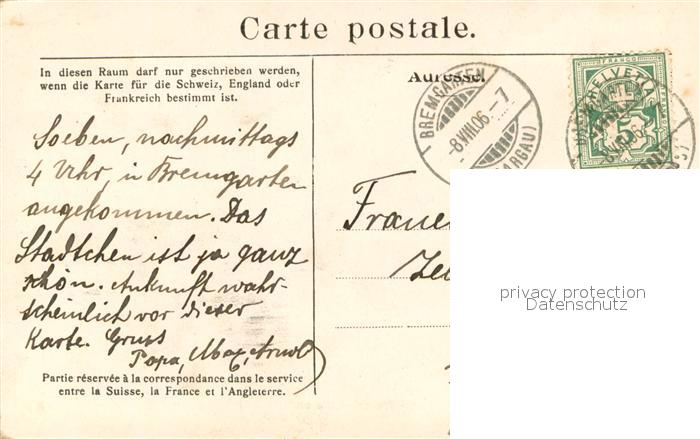 Carte postale.
In diesen Raum darf nur geschrieben werden,
wenn die Karte für die Schweiz, England oder
Frankreich bestimmt ist.
Soeben, nachmittags
4 Uhr, in Bremgarten
angekommen. Das
Städtchen ist ja ganz
schön. Ankunft wahr-
scheinlich vor dieser
Karte. Gruss
Papa, Max, Arnold
Partie réservée à la correspondance dans le service
entre la Suisse, la France et l'Angleterre.
Adresse.
BREMGARTEN
-8.VIII.06.-7
(AARGAU)
FRANCO
HELVETIA
5
8.VIII.06
Frauen
privacy protection
Datenschutz